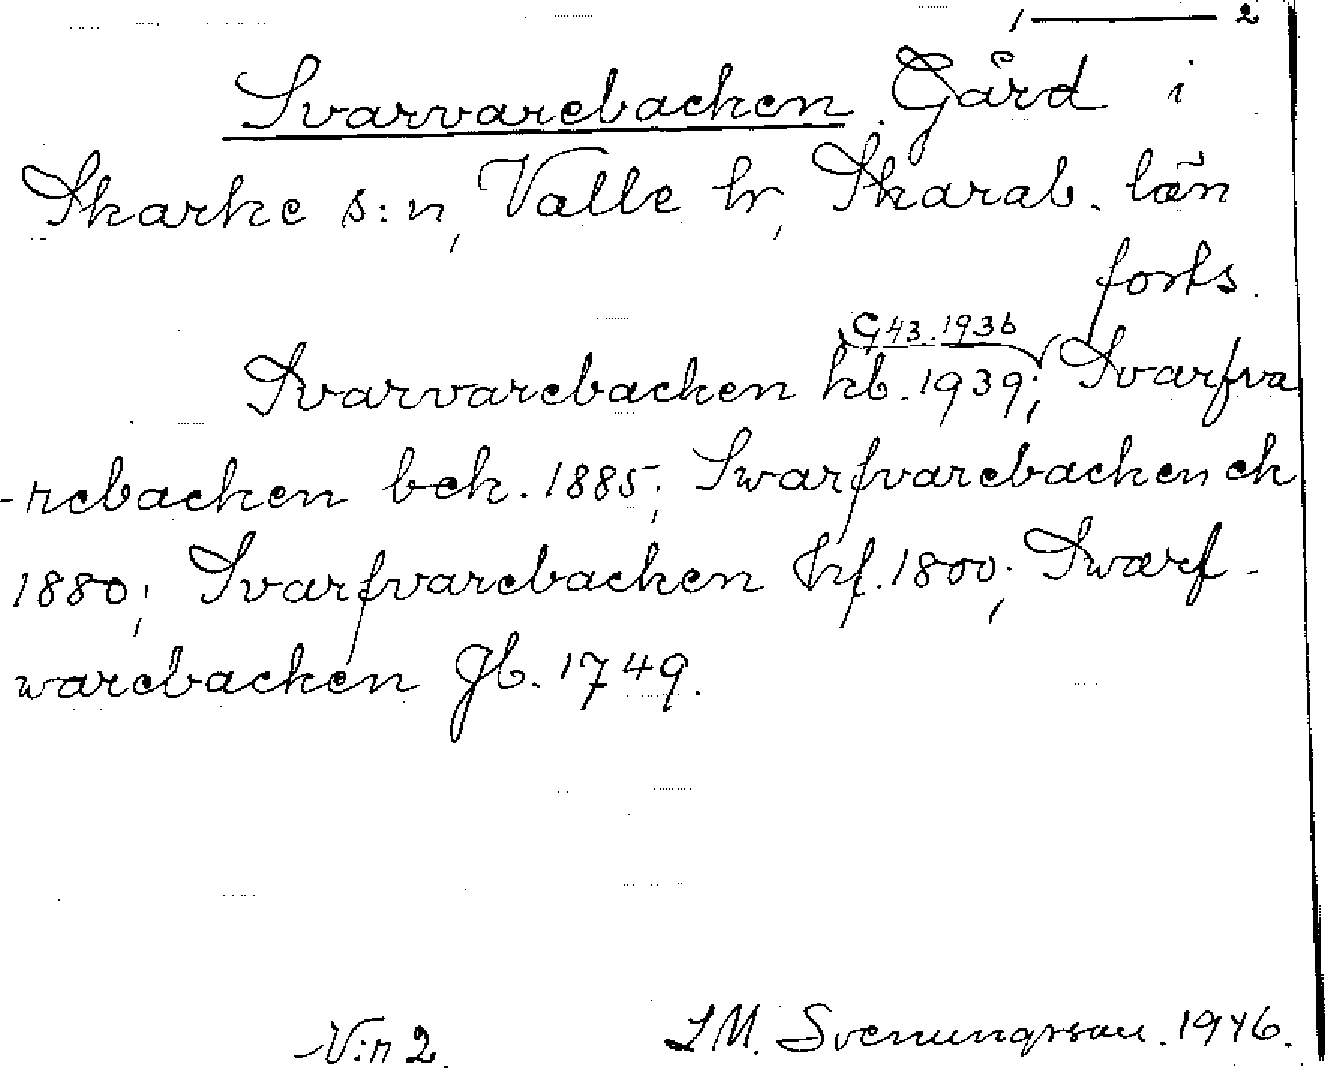 1 — 2
Svarvarebacken. Gård i
Skarke s:n, Valle hr, Skarab. län
forts.
G43.1936
Svarvarebacken kb. 1939; Svarfva
-rebacken bek. 1885; Swarfvarebacken ek
1880; Svarfvarebacken hf. 1800; Swarf-
warebacken Jb. 1749.
V:n 2. L M. Svenungsson. 1946.